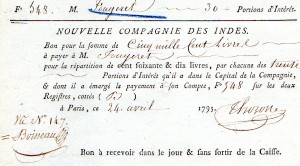 F° 548. M. Feugeret 30 Portions d'Intérêt.
NOUVELLE COMPAGNIE DES INDES.
Bon pour la somme de Cinq mille Cent Livres
à payer à M. Feugeret
pour la répartition de cent soixante & dix livres, par chacune des trente
Portions d'Intérêt qu'il a dans le Capital de la Compagnie,
& dont il a émargé le payement à son Compte, F° 548 sur les deux
Registres, cottés
à Paris, ce 24 avril 1793.
Vu N° 147.
Boineau
Bon à recevoir dans le jour & sans sortir de la Caisse.